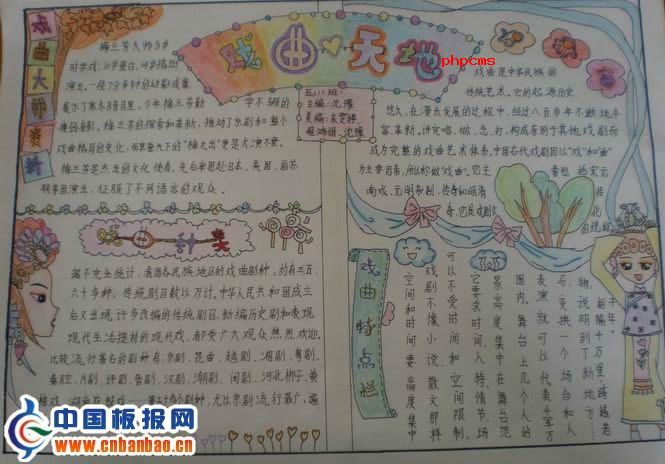 戏曲大师赛科
梅兰芳大师8岁
时学戏,10岁登台,14岁搭班
演出,一段7分多钟的动影成像
展示了寒冬腊月里,少年梅兰芳勤
学不辍的
瘦弱身影。梅兰芳的探索和革新,推动了京剧和整个
戏曲格局的变化,而享誉天下的“梅之出”更是大演不衰。
梅兰芳是杰出的文化使者,先后率团赴日本、美国、前苏
联等国演出,征服了不同语言的观众。
戏曲♥天地
phpcms
五(1)班:
主编:沈臻
美编:朱
程鸿娟、沈臻
戏曲是中华民族的
传统艺术,它的起源历史
悠久,在漫长发展的过程中,经过八百多年不断地丰
富、革新,讲究唱、做、念、打,构成有别于其他戏剧而
成为完整的戏曲艺术体系。中国古代戏剧因以“戏”和“曲”
为主要因素,所以称做“戏曲”。它主
要包括宋元
南戏、元明杂剧、传奇和明清
传奇,它是戏剧文
据不完全统计,我国各民族地区的戏曲剧种,约有三百
六十多种,传统剧目数以万计。中华人民共和国成立
后又出现许多改编的传统剧目,新编历史剧和表现
现代生活提材的现代戏,都受广大观众热烈欢迎。
比较流行著名的剧种有:京剧、昆曲、越剧、湘剧、粤剧、
秦腔、川剧、评剧、晋剧、汉剧、潮剧、闽剧、河北梆子、黄
梅戏、湖南花鼓戏……等五十多个剧种,尤以京剧流行最广,遍
戏曲特点栏
空间和时间要高度集中
戏剧不像小说、散文那样
可以不受时间和空间限制,
它要求时间、人、情节、场
景高度集中在舞台范
围内。舞台上几个人的
表演就可以代表千军万
马,变换一个场台和人
物,说明到了新地方……
相隔千万里,跨越若
干年。
中国板报网
www.cnbanbao.cn